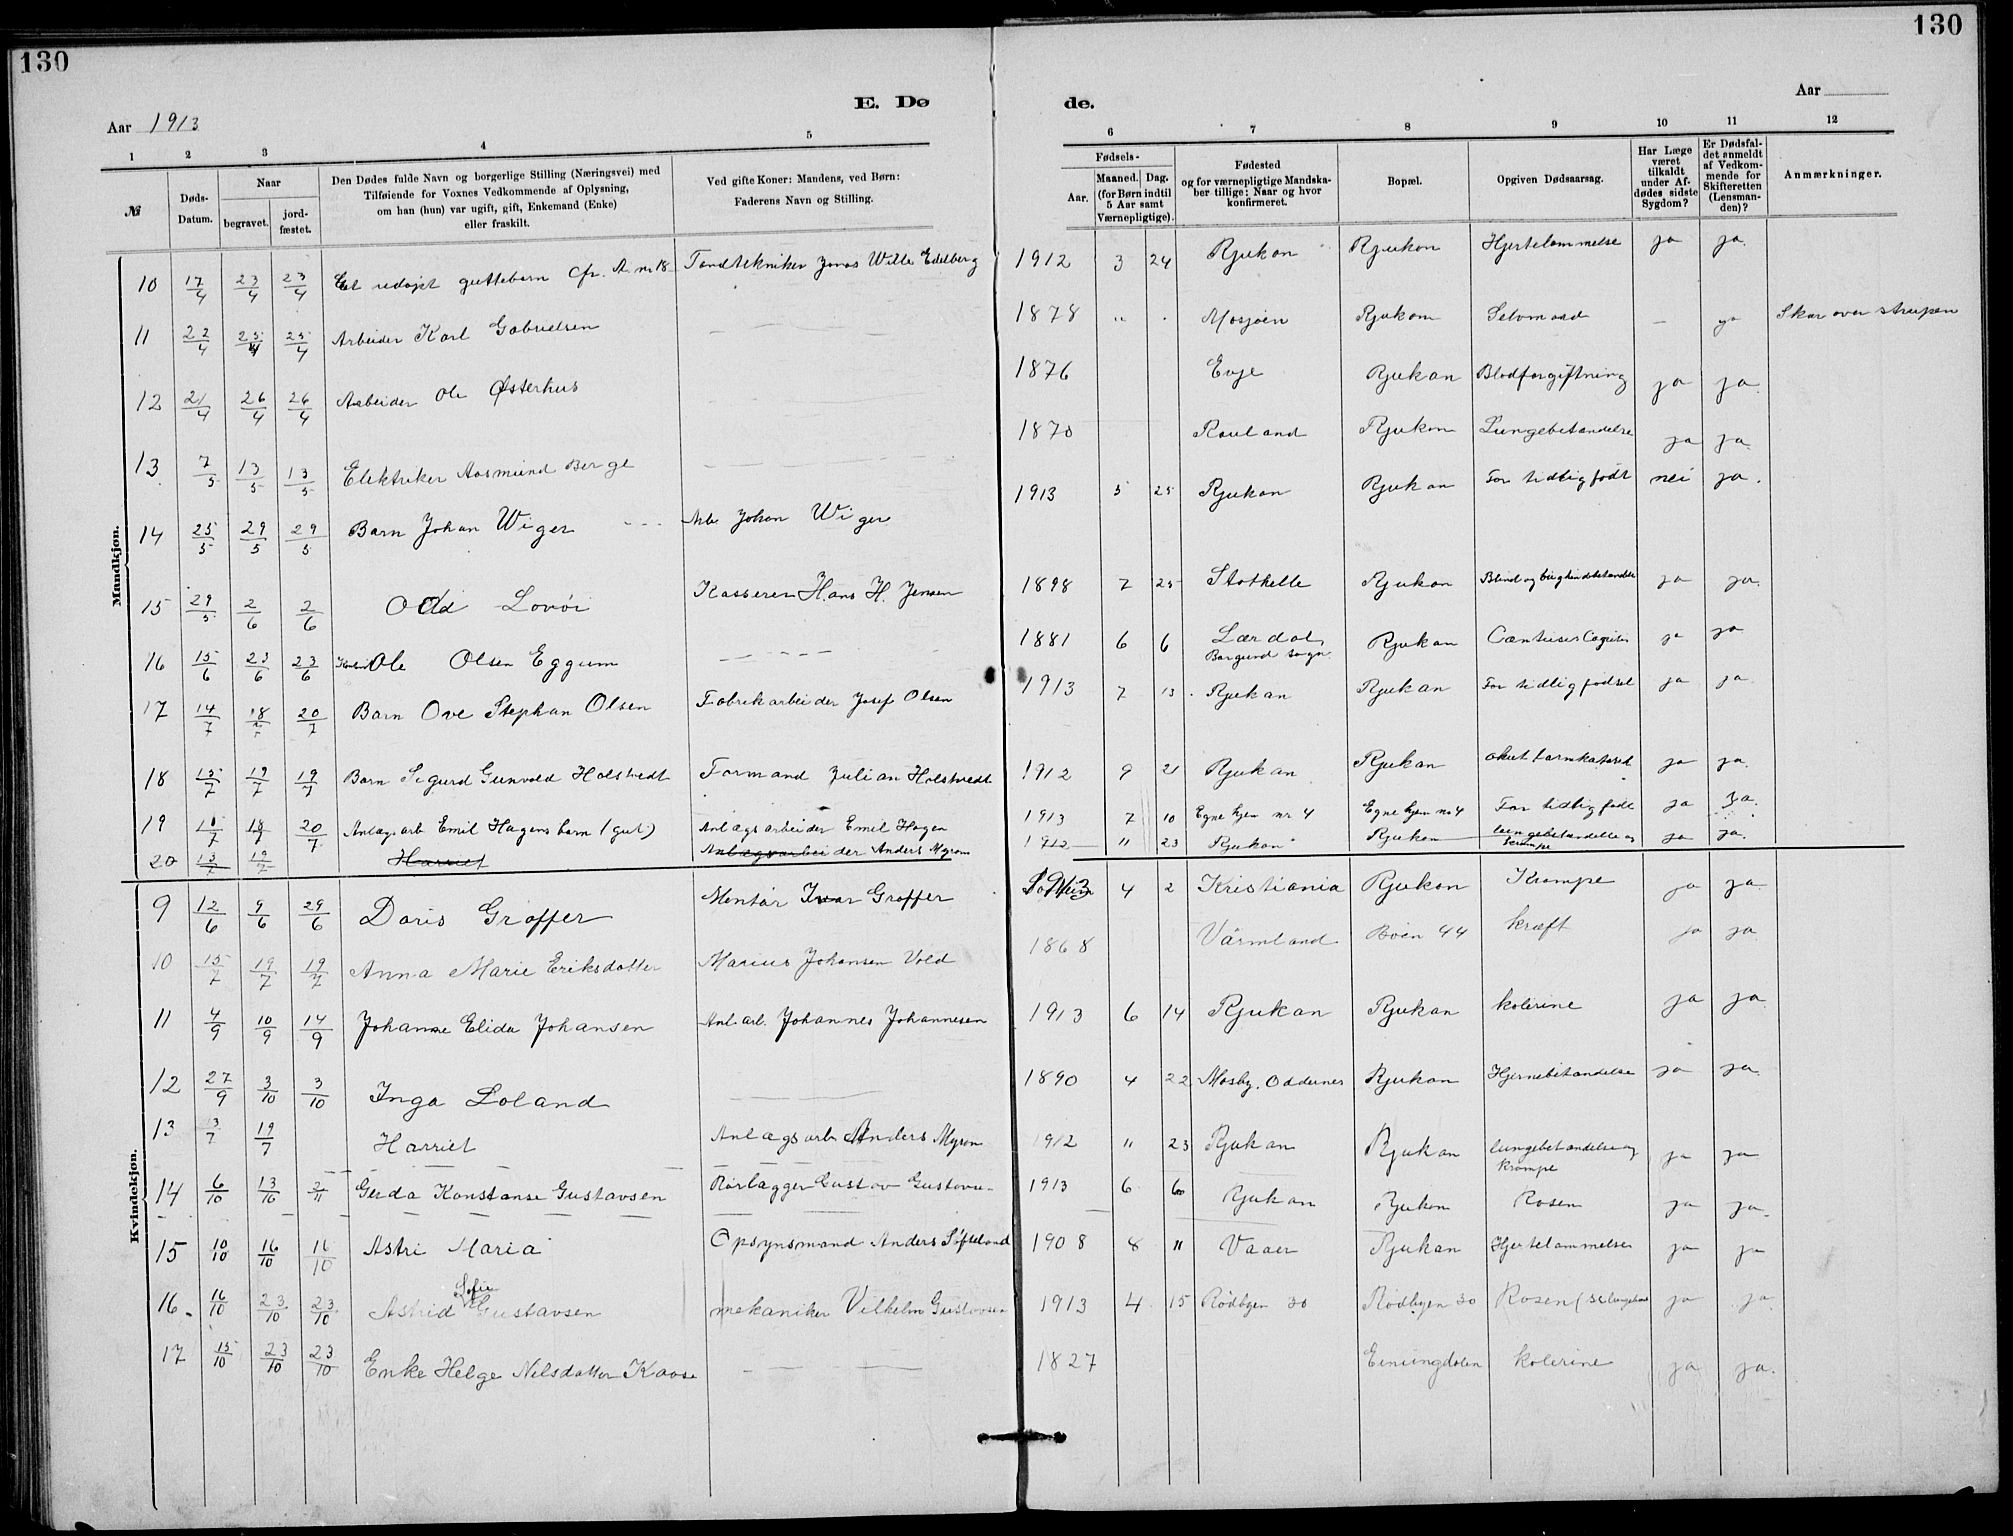 130
130
E. Dø
de.
Aar 1913
Aar
1 2 3 4 5 6 7 8 9 10 11 12
№
Døds-Datum.
Naar
begravet.
jord-fæstet.
Den Dødes fulde Navn og borgerlige Stilling (Næringsvei) med
Tilføiende for Voxnes Vedkommende af Oplysning,
om han (hun) var ugift, gift, Enkemand (Enke)
eller fraskilt.
Ved gifte Koner: Mandens, ved Børn:
Faderens Navn og Stilling.
Fødsels-
Aar.
Maaned. Dag.
(for Børn indtil
5 Aar samt
Værnepligtige).
Fødested
og for værnepligtige Mandska-
ber tillige: Naar og hvor
konfirmeret.
Bopæl.
Opgiven Dødsaarsag.
Har Læge
været
tilkaldt
under Af-
dødes sidste
Sygdom?
Er Dødsfal-
det anmeldt
af Vedkom-
mende for
Skifteretten
(Lensman-
den)?
Anmærkninger.
Mandkjøn.
10 17/4 23/4 23/4 Et udøpt guttebarn cfr. A nr 18 Tandtekniker Jonas Wille Edelberg 1912 3 24 Rjukan Rjukan Hjertelammelse ja ja
11 22/4 25/4 25/4 Arbeider Karl Gabrielsen 1878 Mosjøen Rjukan Selvmord – ja Skar over strupen
12 21/4 26/4 26/4 Arbeider Ole Østerhus 1876 Evje Rjukan Blodforgiftning ja ja
13 7/5 13/5 13/5 Elektriker Aasmund Berge 1870 Rauland Rjukan Lungebetændelse ja ja
14 25/5 29/5 29/5 Barn Johan Wiger Arb. Johan Wiger 1913 5 25 Rjukan Rjukan For tidlig født nei ja.
15 29/5 2/6 2/6 Odd Lovöi Kasserer Hans H. Jensen 1898 7 25 Stathelle Rjukan Blind og bughindebetændelse ja ja.
16 15/6 23/6 23/6 Ole Olsen Eggum 1881 6 6 Lærdal, Borgund sogn Rjukan ja ja
17 14/7 18/7 20/7 Barn Ove Stephan Olsen Fabrikarbeider Josef Olsen 1913 7 13 Rjukan Rjukan For tidlig fødsel ja ja
18 15/7 19/7 19/7 Barn Sigurd Gunvald Holstvedt Formand Julian Holstvedt 1912 9 21 Rjukan Rjukan akut tarmkatarrh ja ja.
19 18/7 20/7 Anlægsarb Emil Hagens barn (gut) Anlægsarbeider Emil Hagen 1913 7 10 Egne hjem nr 4 Egne hjem no 4 For tidlig født ja ja.
20 13/7 19/7 Harriet Anlægsarbeider Anders Myran 1912 11 23 Rjukan Rjukan lungebetændelse og krampe ja ja.
Kvindekjøn.
9 12/6 9/6 29/6 Doris Groffer Montør Ivar Groffer 1913 4 2 Kristiania Rjukan Krampe ja ja.
10 15/7 19/7 19/7 Anna Marie Eriksdatter Marius Johansen Vold 1868 Värmland Bøen 44 kræft ja ja.
11 4/9 10/9 14/9 Johanne Elida Johansen Anl. arb. Johannes Johannesen 1913 6 14 Rjukan Rjukan kolerine ja ja
12 27/9 3/10 3/10 Inga Loland 1890 4 22 Mosby, Oddernes Rjukan Hjernebetændelse ja ja.
13 3/7 19/7 Harriet Anlægsarb Anders Myran 1912 11 23 Rjukan Rjukan lungebetændelse og krampe ja ja
14 6/10 13/10 2/11 Gerda Konstanse Gustavsen Rørlægger Gustav Gustavsen 1913 6 6 Rjukan Rjukan Rosen ja ja.
15 10/10 16/10 16/10 Astri Maria Opsynsmand Anders Softeland 1908 8 11 Vaaer Rjukan Hjertelammelse ja ja
16. 16/10 23/10 23/10 Astrid Sofie Gustavsen mekaniker Vilhelm Gustavsen 1913 4 15 Rødbyen 30 Rødbyen 30 Rosen ja ja.
17 15/10 23/10 23/10 Enke Helge Nilsdatter Kaase 1827 Einungdalen kolerine ja ja.